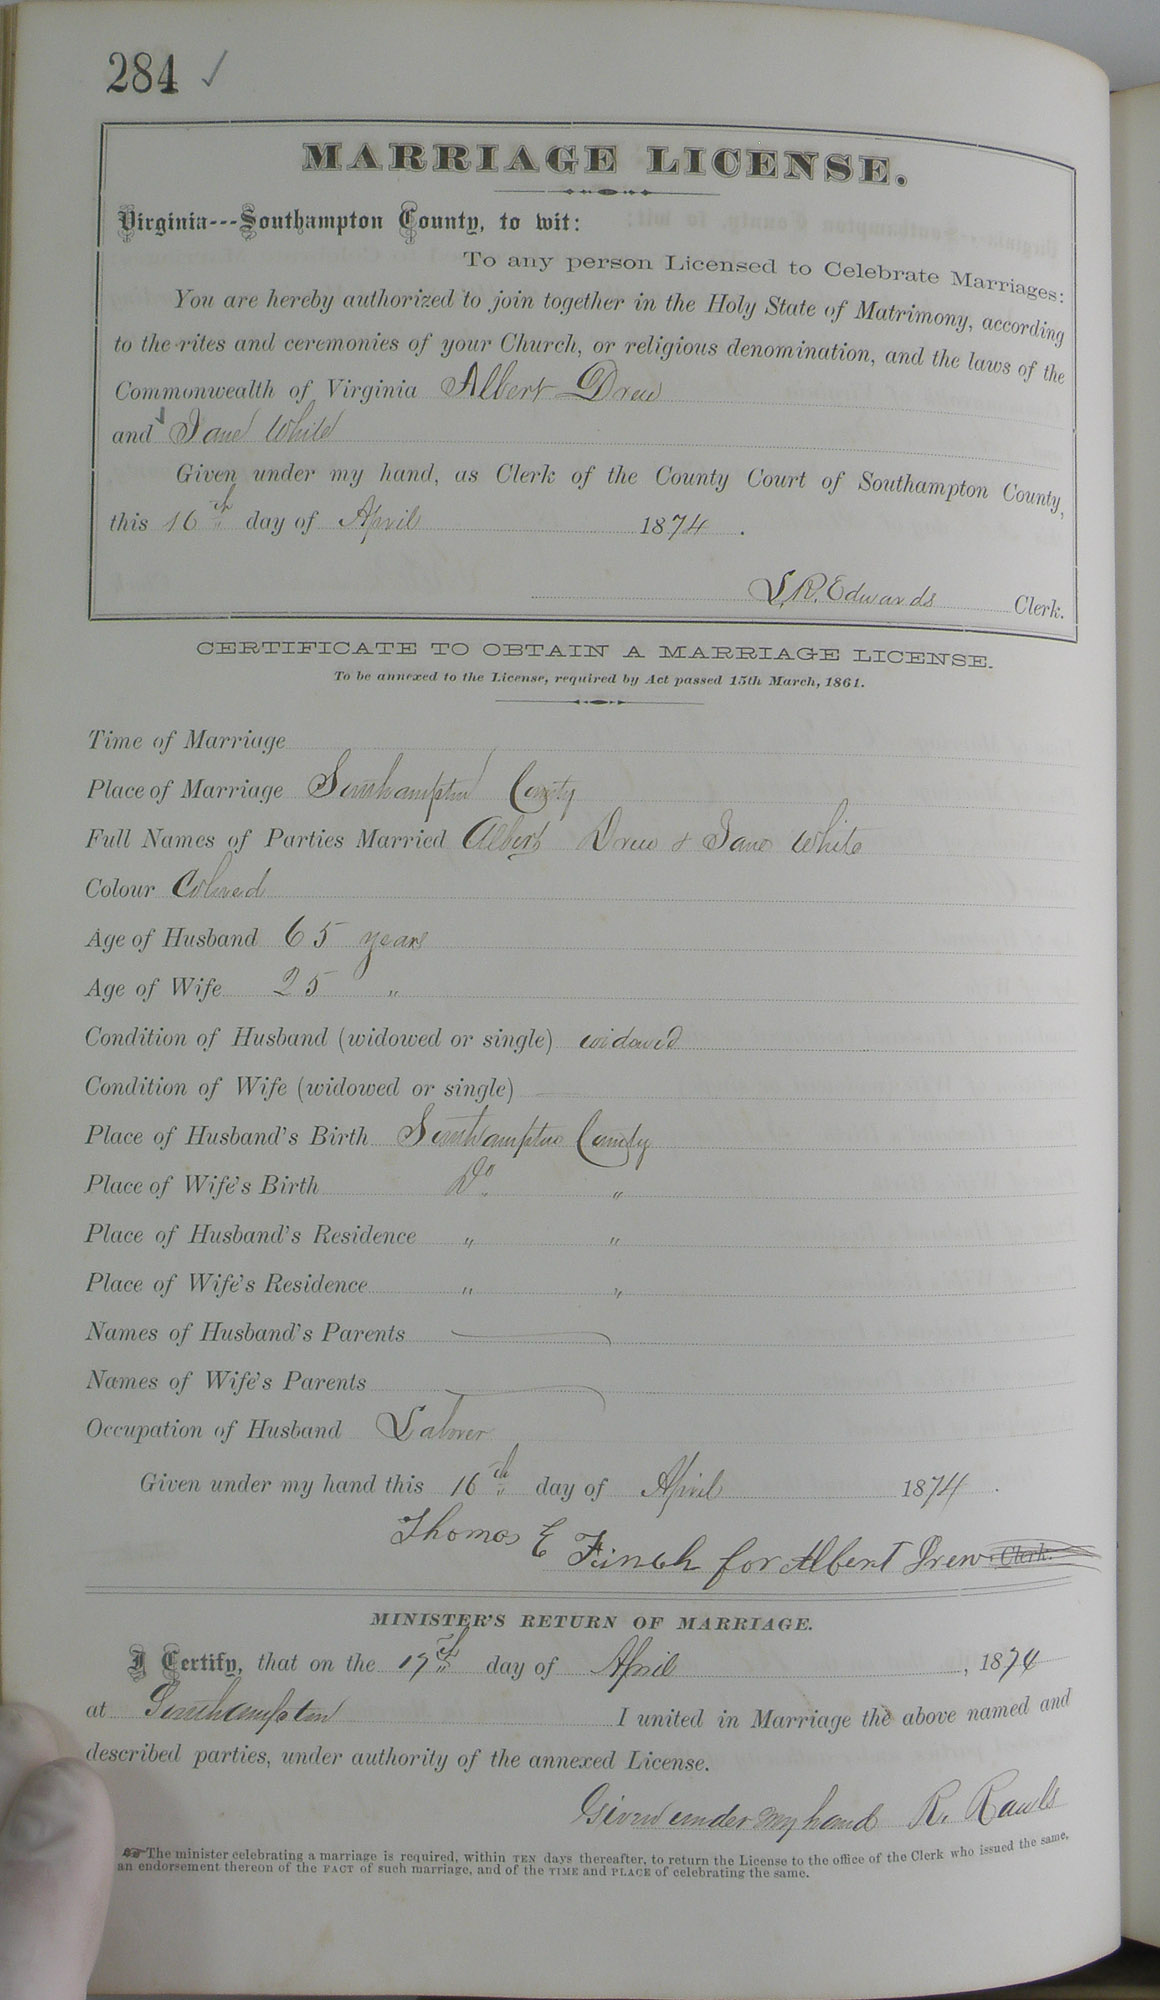 284 ✓
MARRIAGE LICENSE.
Virginia---Southampton County, to wit:
To any person Licensed to Celebrate Marriages:
You are hereby authorized to join together in the Holy State of Matrimony, according
to the rites and ceremonies of your Church, or religious denomination, and the laws of the
Commonwealth of Virginia Albert Drew
and Jane White
Given under my hand, as Clerk of the County Court of Southampton County,
this 16th day of April 1874.
L.R. Edwards Clerk.
CERTIFICATE TO OBTAIN A MARRIAGE LICENSE.
To be annexed to the License, required by Act passed 15th March, 1861.
Time of Marriage
Place of Marriage Southampton County
Full Names of Parties Married Albert Drew & Jane White
Colour Colored
Age of Husband 65 years
Age of Wife 25 "
Condition of Husband (widowed or single) widowed
Condition of Wife (widowed or single)
Place of Husband's Birth Southampton County
Place of Wife's Birth Do. "
Place of Husband's Residence " "
Place of Wife's Residence " "
Names of Husband's Parents
Names of Wife's Parents
Occupation of Husband Laborer
Given under my hand this 16th day of April 1874.
Thomas E Finch for Albert Drew Clerk.
MINISTER'S RETURN OF MARRIAGE.
I Certify, that on the 17th day of April, 1874
at Southampton I united in Marriage the above named and
described parties, under authority of the annexed License.
Given under my hand R. Rawls
☞The minister celebrating a marriage is required, within TEN days thereafter, to return the License to the office of the Clerk who issued the same,
an endorsement thereon of the FACT of such marriage, and of the TIME and PLACE of celebrating the same.